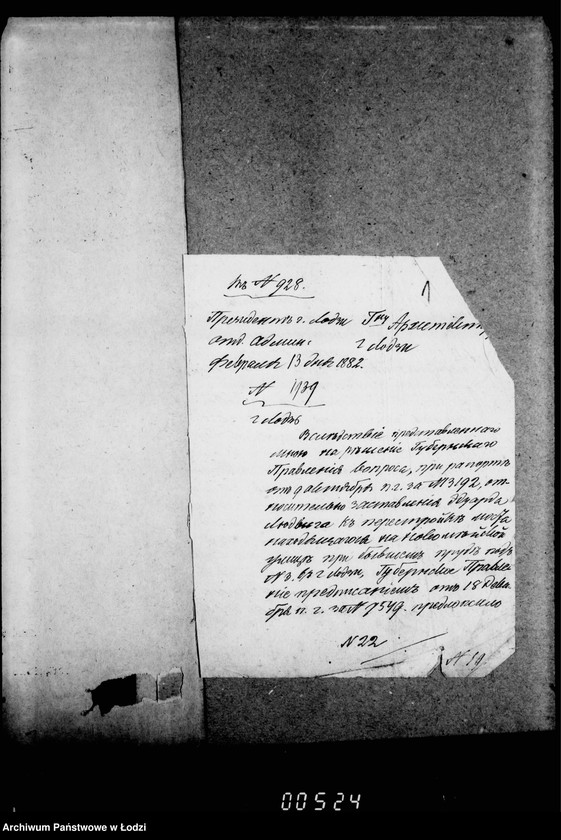 къ № 928.
1
Президентъ г. Лодзи Гну Архитект
отд. админ: г Лодзи
Февраля 13 дня 1882.
№ 1139
г Лодзь
Вслѣдствіе представленнаго
мною на рѣшеніе Губернскаго
Правленія вопроса, при рапортѣ
отъ 9 октября п. г. за № 3192, от-
носительно заставленія Эдуарда
Людвига къ перестройкѣ моста
находящагося на
улицѣ при бывшемъ прудѣ подъ
№ въ г Лодзи, Губернское Правле-
ніе предписаніемъ отъ 18 Дека-
бря п. г. за № 7549. предложило
№ 22
№ 19
00524
Archiwum Państwowe w Łodzi